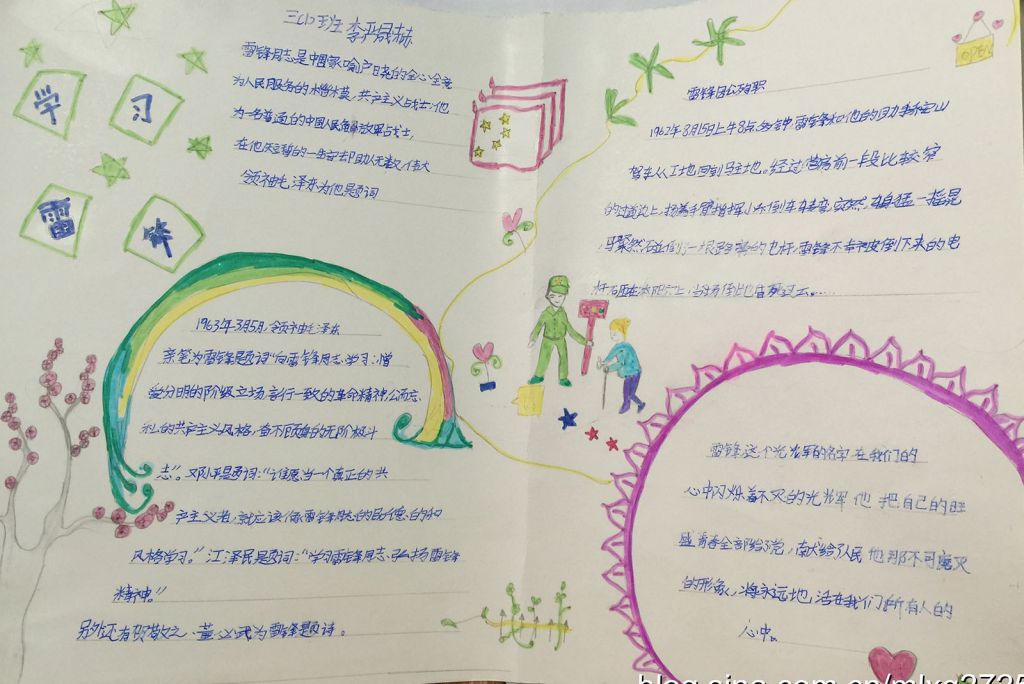 学 习
雷 锋
三(1)班 李
雷锋同志是中国家喻户晓的全心全意
为人民服务的楷模,共产主义战士;他
为一名普通的中国人民解放军战士,
在他短暂的一生中却助人无数,伟大
领袖毛泽东为他题词
1963年3月5月,领袖毛泽东
亲笔为雷锋题词"向雷锋同志学习:憎
爱分明的阶级立场,言行一致的革命精神,公而忘
私的共产主义风格,奋不顾身的无阶极斗
志"。邓小平题词:"谁愿当一个真正的共
产主义者,就应该像雷锋同志的品德的和
风格学习。"江泽民题词:"学习雷锋同志,弘扬雷锋
精神。"
另外还有贺敬之、董必武为雷锋题诗。
OPEN
雷锋因公
1962年8月15日上午8点多钟,雷锋和他的助手
驾车从工地回到驻地。经过营房前一段比较窄
的过道边上,扬着手臂指挥小乔倒车转弯,突然
倒了一根 的电杆,雷锋不幸被倒下来的电
杆 上,当场
雷锋这个光辉的名字在我们的
心中闪烁着不灭的光辉 他 把自己的旺
盛青春全部给了党,献给了人民 他那不可磨灭
的形象,将永远地,活在我们所有人的
心中。